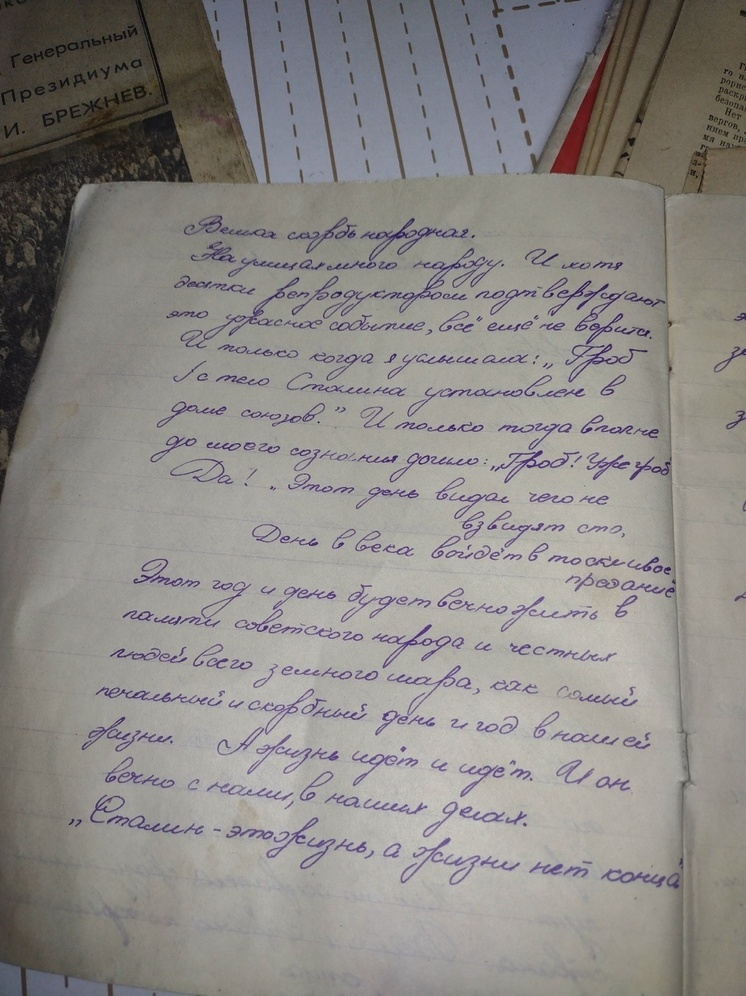 Генеральный
Президиума
И. БРЕЖНЕВ.
Велика скорбь народная.
На улицах много народу. И хотя
десятки репродукторов подтверждают
это ужасное событие, всё ещё не верится.
И только когда я услышала: „Гроб
с тело Сталина установлен в
доме союзов." И только тогда вполне
до моего сознания дошло: „Гроб! Уже гроб
Да! „Этот день видал чего не
взвидят сто,
День в века войдёт в тоскливое
предание
Этот год и день будет вечно жить в
памяти советского народа и честных
людей всего земного шара, как самый
печальный и скорбный день и год в нашей
жизни. А жизнь идёт и идёт. И он
вечно с нами, в наших делах.
„Сталин - это жизнь, а жизни нет конца"